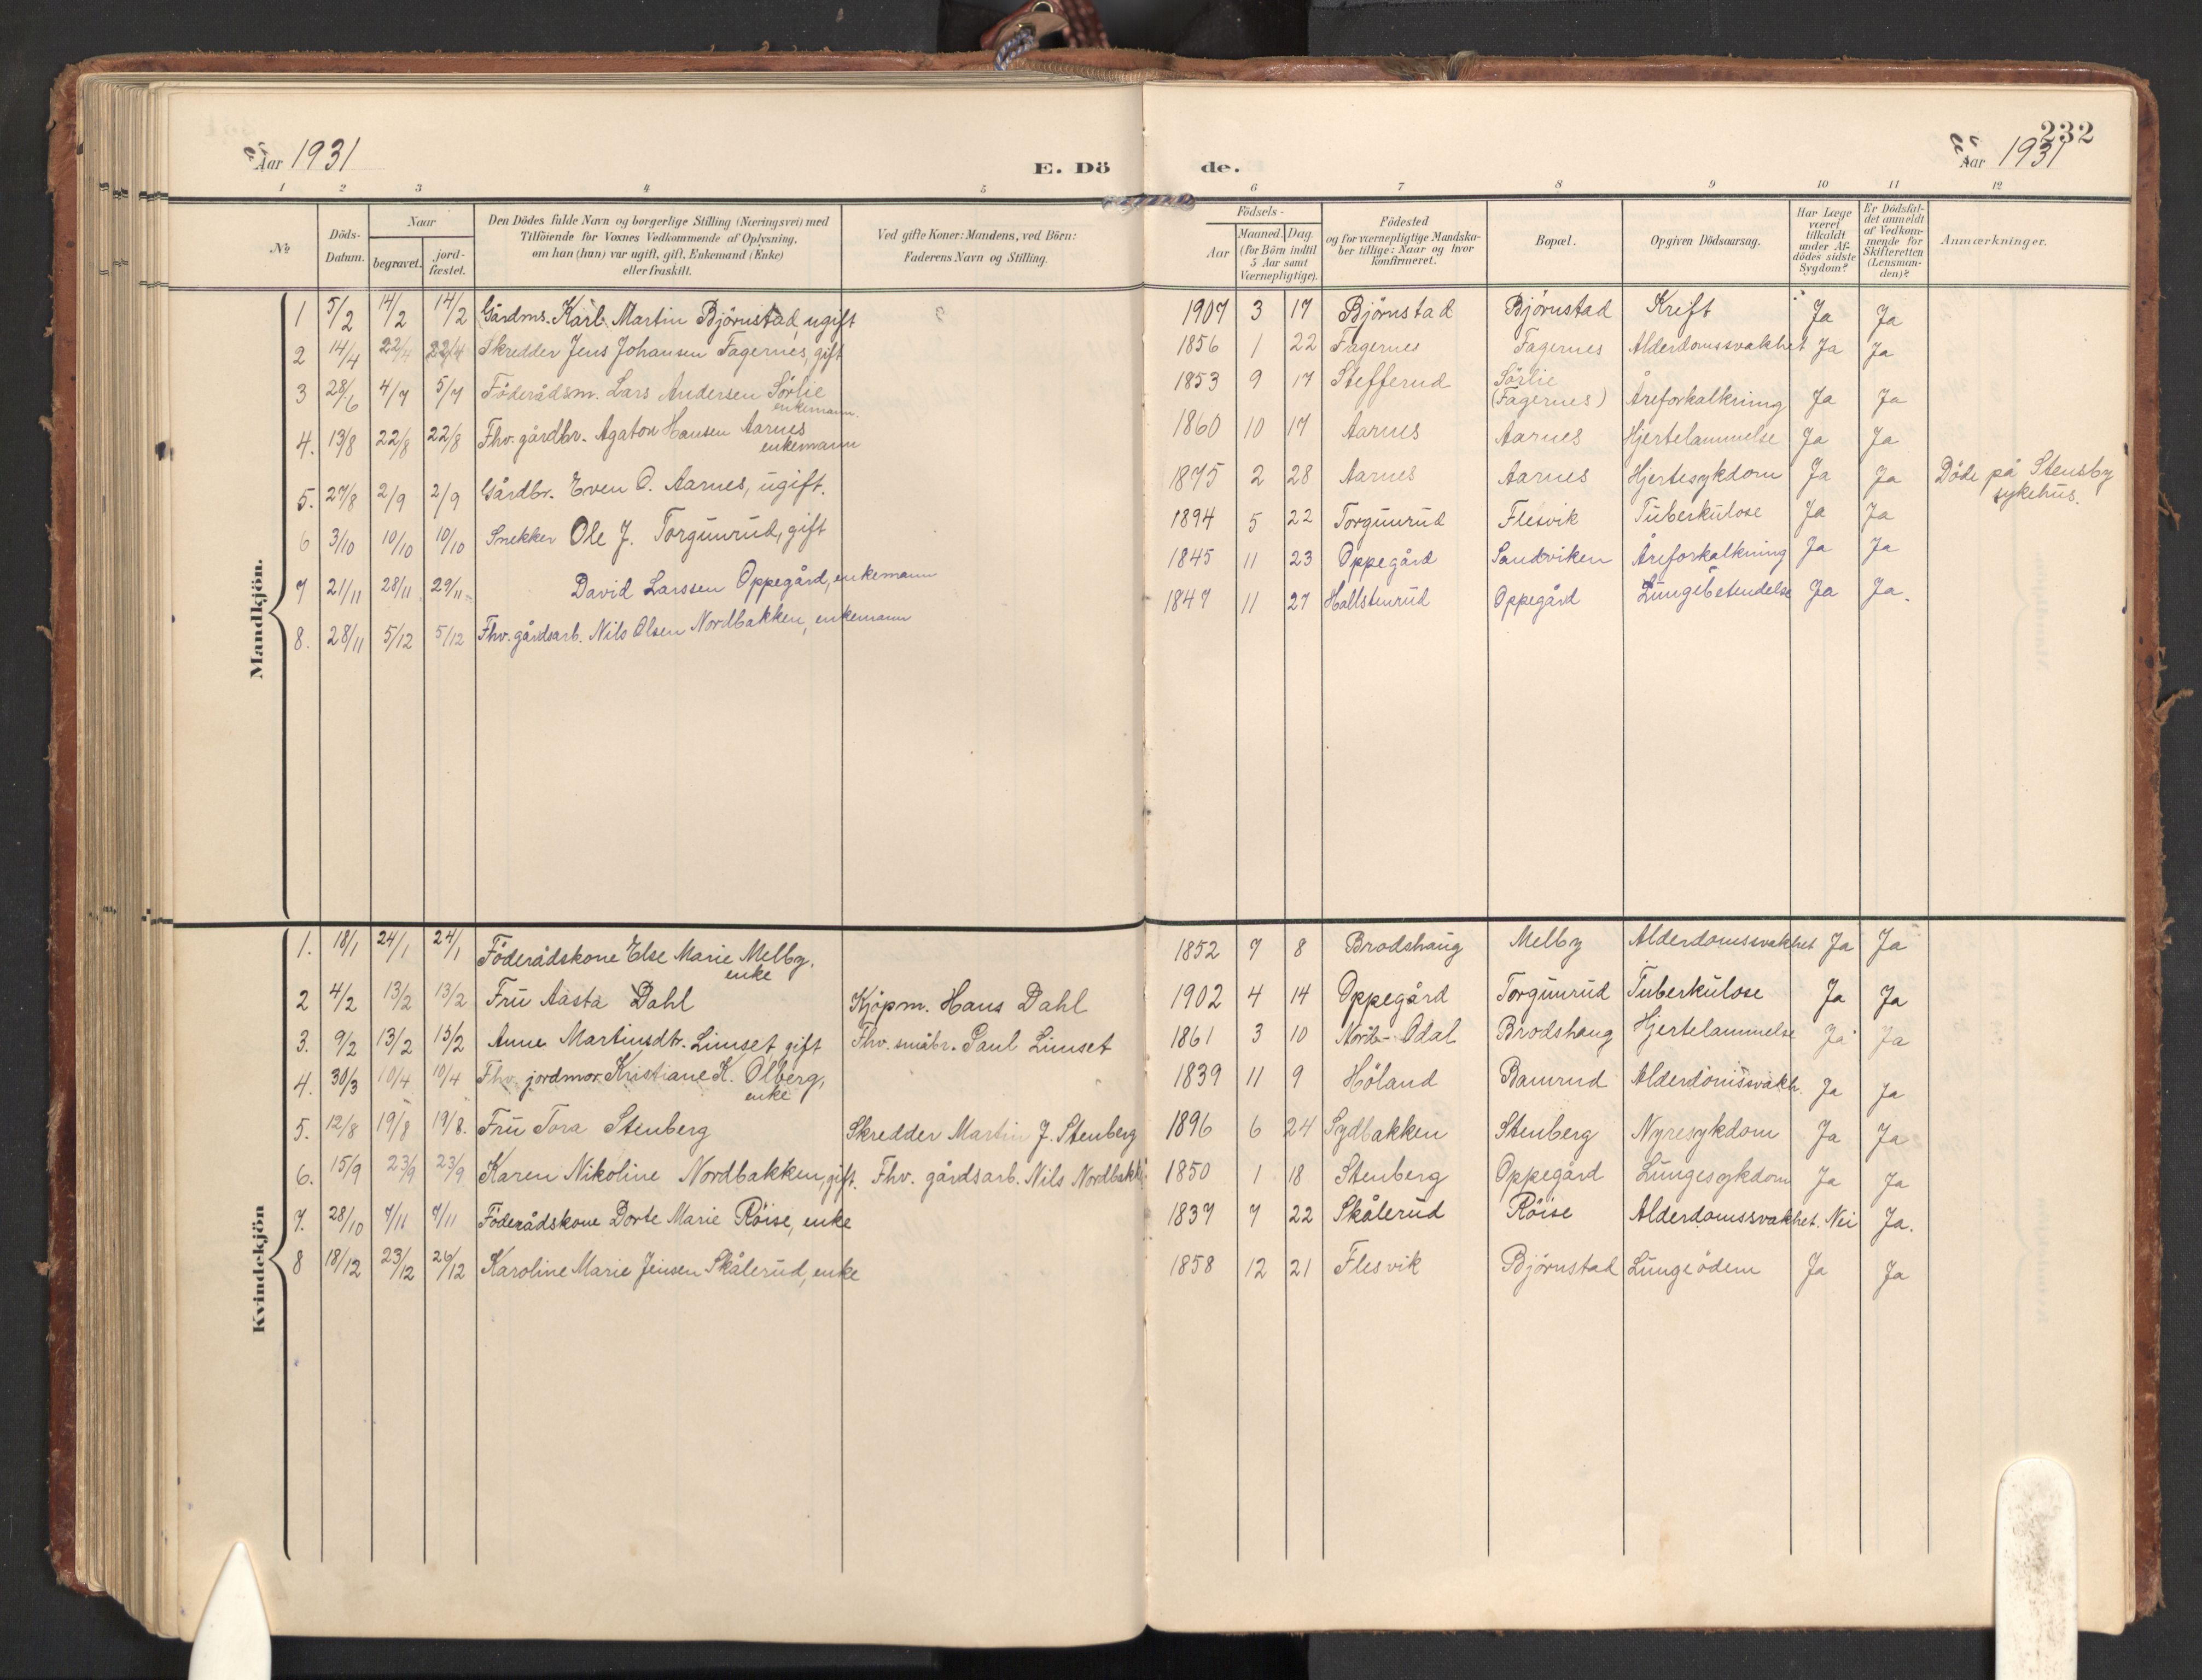 Aar 1931
E. Dö
de.
232
Aar 1931
1 2 3 4 5 6 7 8 9 10 11 12
No
Döds-Datum.
Naar
begravet.
jord-fæstet.
Den Dödes fulde Navn og borgerlige Stilling (Næringsvei) med
Tilföiende for Voxnes Vedkommende af Oplysning,
om han (hun) var ugift, gift, Enkemand (Enke)
eller fraskilt.
Ved gifte Koner: Mandens, ved Börn:
Faderens Navn og Stilling.
Födsels-
Aar
Maaned. Dag.
(for Börn indtil
5 Aar samt
Værnepligtige).
Födested
og for værnepligtige Mandska-
ber tillige: Naar og hvor
konfirmeret.
Bopæl.
Opgiven Dödsaarsag.
Har Læge
været
tilkaldt
under Af-
dödes sidste
Sygdom?
Er Dödsfal-
det anmeldt
af Vedkom-
mende for
Skifteretten
(Lensman-
den)?
Anmærkninger.
Mandkjön.
1 5/2 14/2 14/2 Gårdms. Karl Martin Björnstad, ugift 1907 3 17 Björnstad Björnstad Kreft Ja Ja
2 14/4 22/4 22/4 Skredder Jens Johansen Fagernes, gift 1856 1 22 Fagernes Fagernes Alderdomssvakhet Ja Ja
3 28/6 4/7 5/7 Föderådsm. Lars Andersen Sörlie enkemann. 1853 9 17 Stefferud Sörlie (Fagernes) Åreforkalkning Ja Ja
4. 13/8 22/8 22/8 Fhv. gårdbr. Agaton Hansen Aarnes enkemann 1860 10 17 Aarnes Aarnes Hjertelammelse Ja Ja
5. 27/8 2/9 2/9 Gårdbr. Even O. Aarnes, ugift. 1875 2 28 Aarnes Aarnes Hjertesykdom Ja Ja Döde på Stensby sykehus.
6 3/10 10/10 10/10 Snekker Ole J. Torgunrud, gift 1894 5 22 Torgunrud Flesvik Tuberkulose Ja Ja
7 21/11 28/11 29/11 David Larssen Oppegård, enkemann 1845 11 23 Oppegård Sandviken Åreforkalkning Ja Ja
8. 28/11 5/12 5/12 Fhv. gårdsarb. Nils Olsen Nordbakken, enkemann 1847 11 27 Hallstenrud Oppegård Lungebetendelse Ja Ja.
Kvindekjön
1. 18/1 24/1 24/1 Föderådskone Else Marie Melby. enke 1852 7 8 Brodshaug Melby Alderdomssvakhet Ja Ja
2 4/2 13/2 13/2 Fru Aasta Dahl Kjöpm. Hans Dahl 1902 4 14 Oppegård Torgunrud Tuberkulose Ja Ja
3. 9/2 13/2 15/2 Anne Martinsdtr. Linset gift Fhv. småbr. Paul Linset 1861 3 10 Nord-Odal Brodshaug Hjertelammelse Ja Ja
4. 30/3 10/4 10/4 Fhv. jordmor Kristiane K. Olberg, enke 1839 11 9 Höland Ramrud Alderdomssvakh. Ja Ja
5. 12/8 19/8 19/8. Fru Tora Stenberg Skredder Martin J. Stenberg 1896 6 24 Sydbakken Stenberg Nyresykdom Ja Ja
6. 15/9 23/9 23/9 Karen Nikoline Nordbakken, gift. Fhv. gårdsarb. Nils Nordbakk. 1850 1 18 Stenberg Oppegård Lungesykdom Ja Ja
7. 28/10 7/11 7/11 Föderådskone Dorte Marie Röise, enke 1837 7 22 Skålerud Röise Alderdomssvakhet. Nei Ja.
8 18/12 23/12 26/12 Karoline Marie Jensen Skålerud, enke 1858 12 21 Flesvik Björnstad Lungeödem Ja Ja